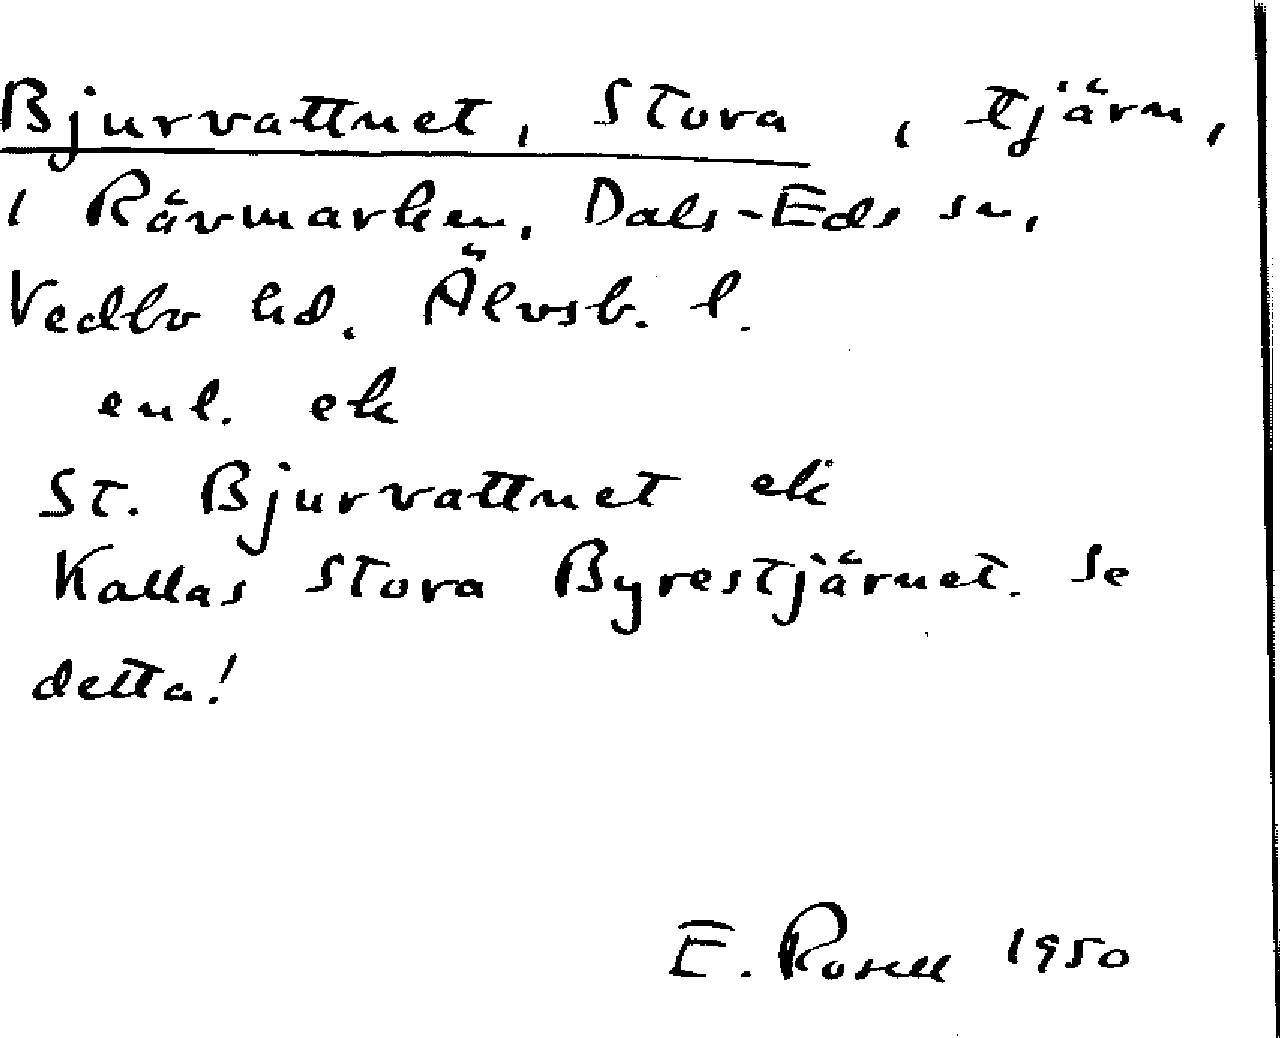 Bjurvattnet, Stora, tjärn,
i Rävmarken, Dals-Eds sn,
Vedbo hd. Älvsb. l.
enl. ek
St. Bjurvattnet ek
Kallas Stora Byrestjärnet. Se
detta!
E. Rosell 1950